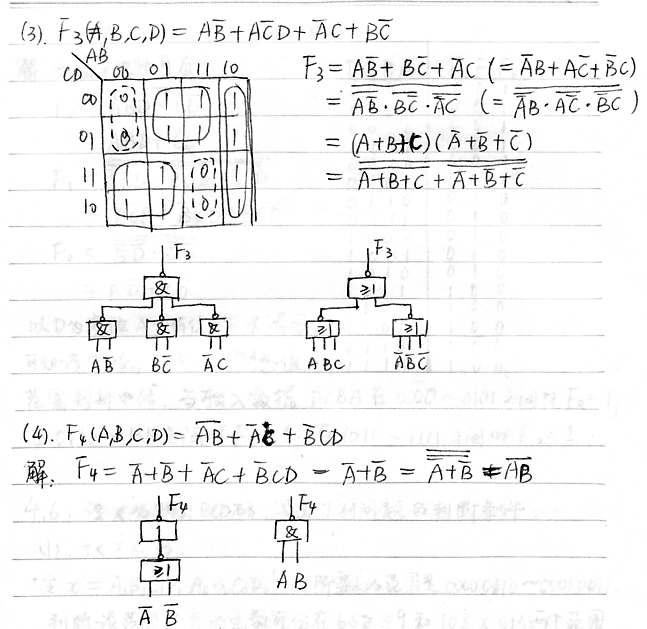 (3). F₃(A,B,C,D) = AB̅ + AC̅D + A̅C + BC̅
AB
CD 00 01 11 10
00 0 1 1 1
01 0 1 1 1
11 1 1 0 1
10 1 1 0 1
F₃ = AB̅ + BC̅ + A̅C (= A̅B + AC̅ + B̅C)
= \overline{\overline{AB̅}·\overline{BC̅}·\overline{A̅C}} (= \overline{\overline{A̅B}·\overline{AC̅}·\overline{B̅C}})
= (A+B+C)(A̅+B̅+C̅)
= \overline{\overline{A+B+C} + \overline{A̅+B̅+C̅}}
F₃ F₃
& ≥1
& & & ≥1 ≥1
AB̅ BC̅ A̅C ABC A̅B̅C̅
(4). F₄(A,B,C,D) = \overline{AB} + A̅C + B̅CD
解: F₄ = A̅+B̅ + A̅C + B̅CD = A̅+B̅ = \overline{\overline{A̅+B̅}} = \overline{AB}
F₄ F₄
1 &
≥1 AB
A̅ B̅